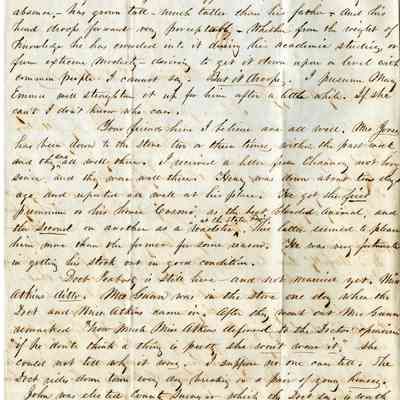 absence. has grown tall - much taller than his father - and his
head droops forward very perceptably - Whether from the weight of
Knowledge he has crowded into it during his academic studies, or
from extreme modesty - desiring to get it down upon a level with
common people - I cannot say. - But it droops. - I presume Mary
Emma will straighten it up for him after a little while. If she
can't I don't know who can.
Your friends here I believe are all well. Mr
has been down to the store two or three times, within the past week,
and they are all well there. I received a letter from Chauncy not long
since and they were well there. Henry was down about ten days
ago and reported all well at his place. He got the first
premium on his horse "Cosmo", as the best blooded animal, and
the second on another as a roadster at the State Fair. This latter seemed to please
him more than the former for some reason. He was very fortunate
in getting his stock out in good condition.
Doct Peabody is still here - and not married yet. Miss
Atkins ditto. Mrs Gunn was in the store one day when the
Doct and Miss Atkins came in. After they went out Mrs Gunn
remarked "how much Miss Atkins defered to the Doctor's opinion
"if he don't think a thing is pretty she won't wear it." she
could not tell why it was. - I suppose no one can tell. The
Doct rides down town every day breaking in a pair of young horses.
John was elected County Surveyor which the Doct says is worth